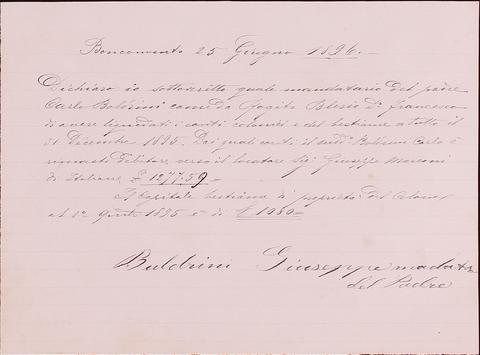 Bonconvento 25 Giugno 1896.
Dichiaro io sottoscritto quale mandatario del padre
Carlo Boldrini come da Fogito Blesio di Francesco
di avere liquidati i conti colonici e del bestiame a tutto il
31 Dicembre 1895. Dai quali conti il sudd. Boldrini Carlo è
rimasto debitore verso il locatore Sig. Giuseppe Marconi
di Italiane £ 1277.59
Il Capitale bestiame di proprietà del Colono
al 1º 1895 è di £ 1080=
Buldrini Giuseppe
del Padre